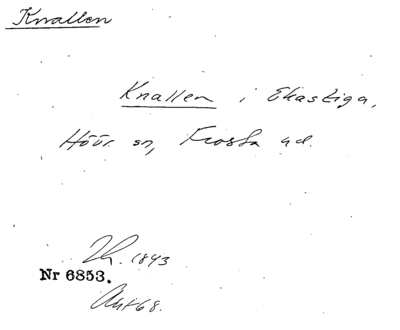 Knallen
Knallen i Ekastiga,
Höör sn, Frosta hd.
1843
Nr 6853.